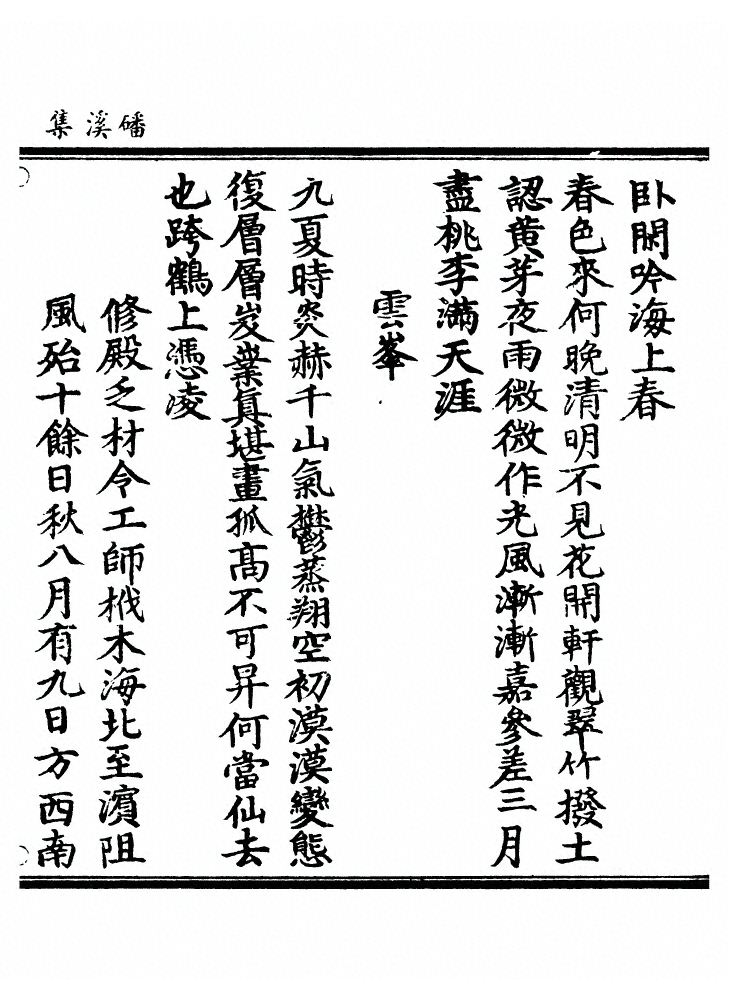 磻溪集
臥閑吟海上春
春色來何晚清明不見花開軒觀翠竹撥土
認黄芽夜雨微微作光風漸漸嘉參差三月
盡桃李滿天涯
雲峯
九夏時炎赫千山氣鬱蒸翔空初漠漠變態
復層層岌業真堪畫孤高不可昇何當仙去
也跨鶴上憑凌
修殿乏材令工師栰木海北至濵阻
風殆十餘日秋八月有九日方西南